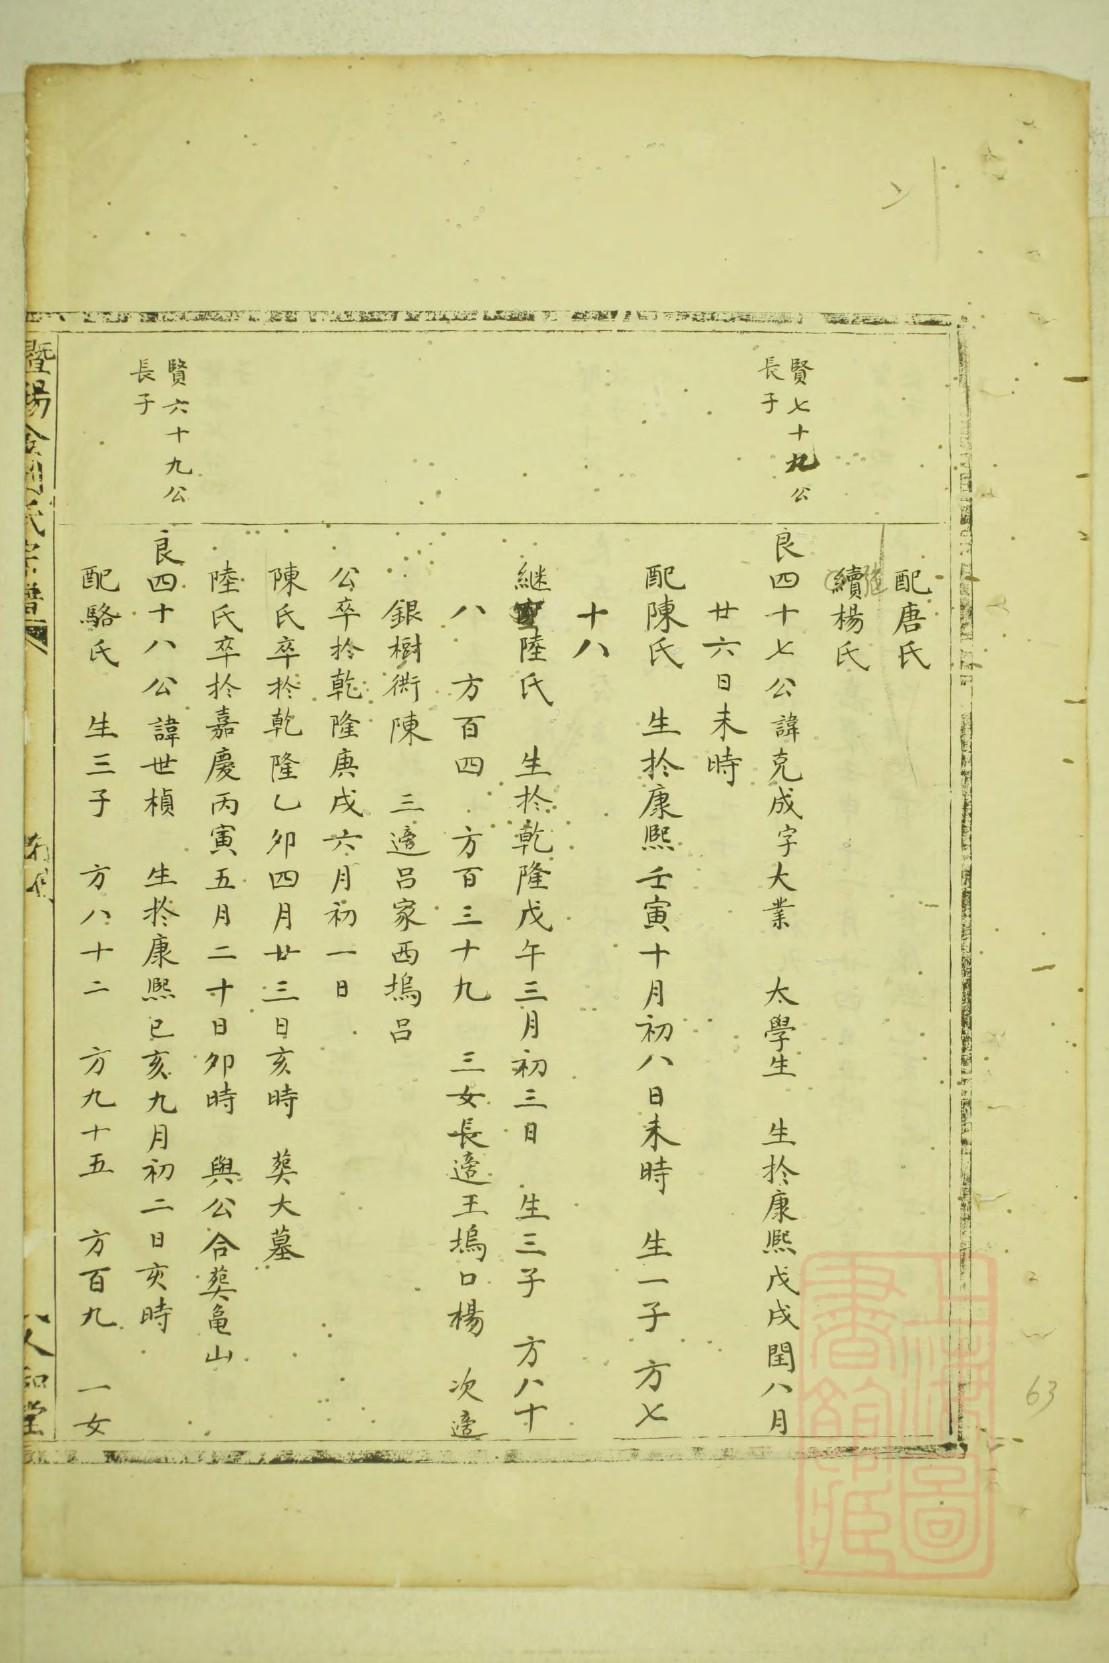 配唐氏
續楊氏
賢七十九公
長子
良四十七公諱克成字大業 太學生 生於康熙戊戌閏八月
廿六日未時
配陳氏 生於康熙壬寅十月初八日未時 生一子 方七
十八
継陸氏 生於乾隆戊午三月初三日 生三子 方八十
八 方百四 方百三十九 三女長適王塢口楊 次適
銀樹衖陳 三適呂家西塢呂
公卒於乾隆庚戌六月初一日
陳氏卒於乾隆乙卯四月廿三日亥時 葬大墓
陸氏卒於嘉慶丙寅五月二十日卯時 與公合葬龜山
賢六十九公
長子
良四十八公諱世楨 生於康熙己亥九月初二日亥時
配駱氏 生三子 方八十二 方九十五 方百九 一女
暨陽 氏宗譜
上海圖書館藏
63